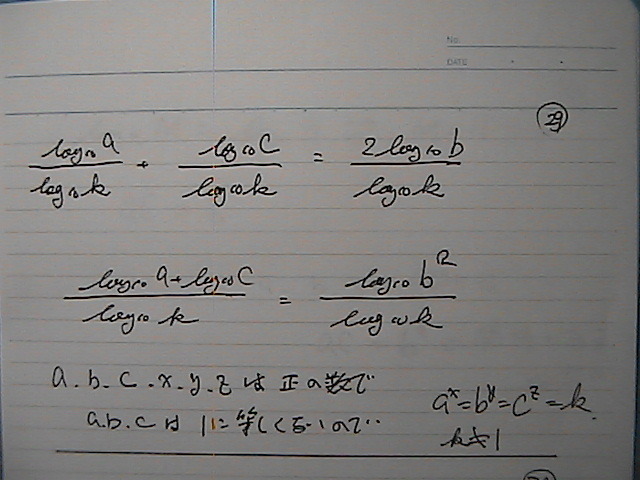 No.
DATE
㉙
log₁₀a/log₁₀k + log₁₀c/log₁₀k = 2log₁₀b/log₁₀k
(log₁₀a + log₁₀c)/log₁₀k = log₁₀b²/log₁₀k
a.b.c.x.y.zは正の数で
a.b.cは1に等しくないので‥
aˣ=bʸ=cᶻ=k.
k≠1